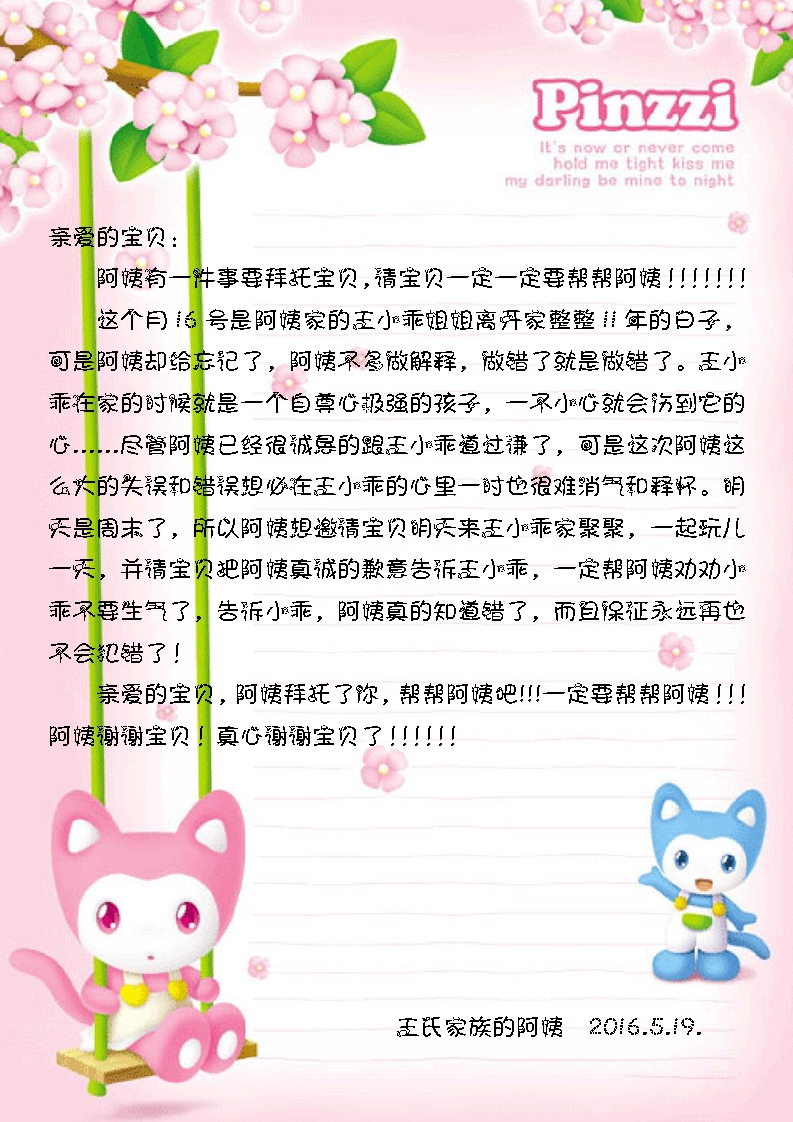 Pinzzi
It's now or never come
hold me tight kiss me
my darling be mine to night
亲爱的宝贝：
阿姨有一件事要拜托宝贝，请宝贝一定一定要帮帮阿姨！！！！！！！
这个月16号是阿姨家的王小乖姐姐离开家整整11年的日子，
可是阿姨却给忘记了，阿姨不多做解释，做错了就是做错了。王小
乖在家的时候就是一个自尊心极强的孩子，一不小心就会伤到它的
心……尽管阿姨已经很诚恳的跟王小乖道过谦了，可是这次阿姨这
么大的失误和错误想必在王小乖的心里一时也很难消气和释怀。明
天是周末了，所以阿姨想邀请宝贝明天来王小乖家聚聚，一起玩儿
一天，并请宝贝把阿姨真诚的歉意告诉王小乖，一定帮阿姨劝劝小
乖不要生气了，告诉小乖，阿姨真的知道错了，而且保证永远再也
不会犯错了！
亲爱的宝贝，阿姨拜托了你，帮帮阿姨吧!!!一定要帮帮阿姨！！！
阿姨谢谢宝贝！真心谢谢宝贝了！！！！！！
王氏家族的阿姨 2016.5.19.